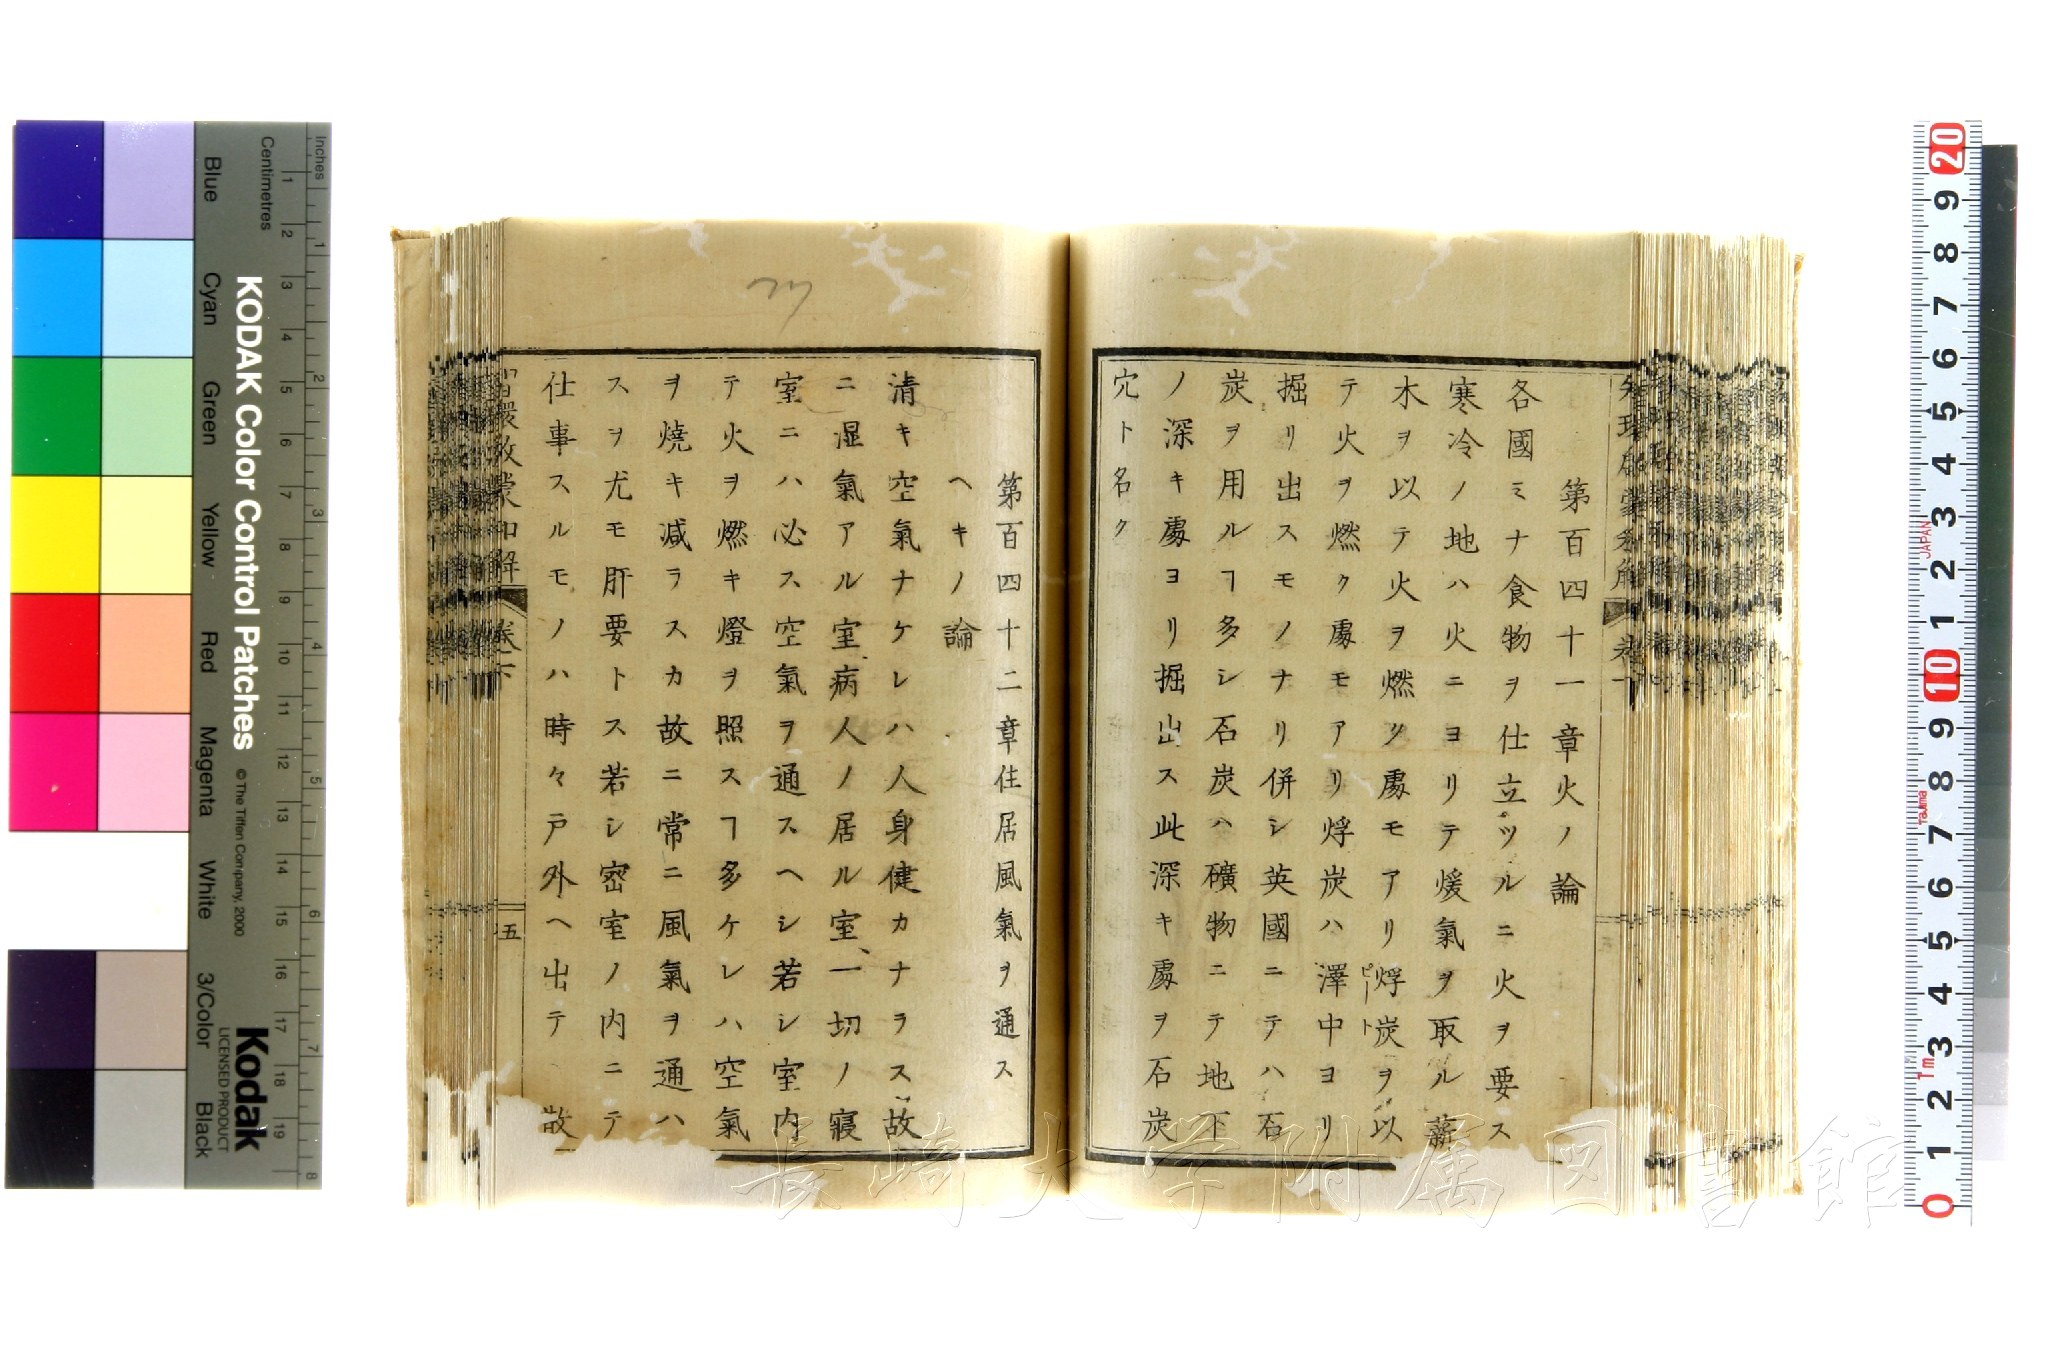 第百四十一章火ノ論
各國ミナ食物ヲ仕立ツルニ火ヲ要ス
寒冷ノ地ハ火ニヨリテ煖氣ヲ取ル薪
木ヲ以テ火ヲ燃ク處モアリ烰炭ヲ以
ピート
テ火ヲ燃ク處モアリ烰炭ハ澤中ヨリ
掘リ出スモノナリ併シ英國ニテハ石
炭ヲ用ルヿ多シ石炭ハ礦物ニテ地下
ノ深キ處ヨリ掘出ス此深キ處ヲ石炭
穴ト名ク
第百四十二章住居風氣ヲ通ス
ヘキノ論
清キ空氣ナケレハ人身健カナラス故
ニ湿氣アル室病人ノ居ル室、一切ノ寢
室ニハ必ス空氣ヲ通スヘシ若シ室内
テ火ヲ燃キ燈ヲ照スヿ多ケレハ空氣
ヲ燒キ减ラスカ故ニ常ニ風氣ヲ通ハ
スヲ尤モ肝要トス若シ密室ノ内ニテ
仕事スルモノハ時々戸外ヘ出テ
啟蒙和解 卷下
五
KODAK Color Control Patches
© The Tiffen Company, 2000
Kodak
LICENSED PRODUCT
Inches
Centimetres
Blue
Cyan
Green
Yellow
Red
Magenta
White
3/Color
Black
1 2 3 4 5 6 7 8 9 10 11 12 13 14 15 16 17 18 19
1 2 3 4 5 6 7 8
20 9 8 7 6 5 4 3 2 1 10 9 8 7 6 5 4 3 2 1 0
JAPAN
Tajima
Tm
長崎大学附属図書館